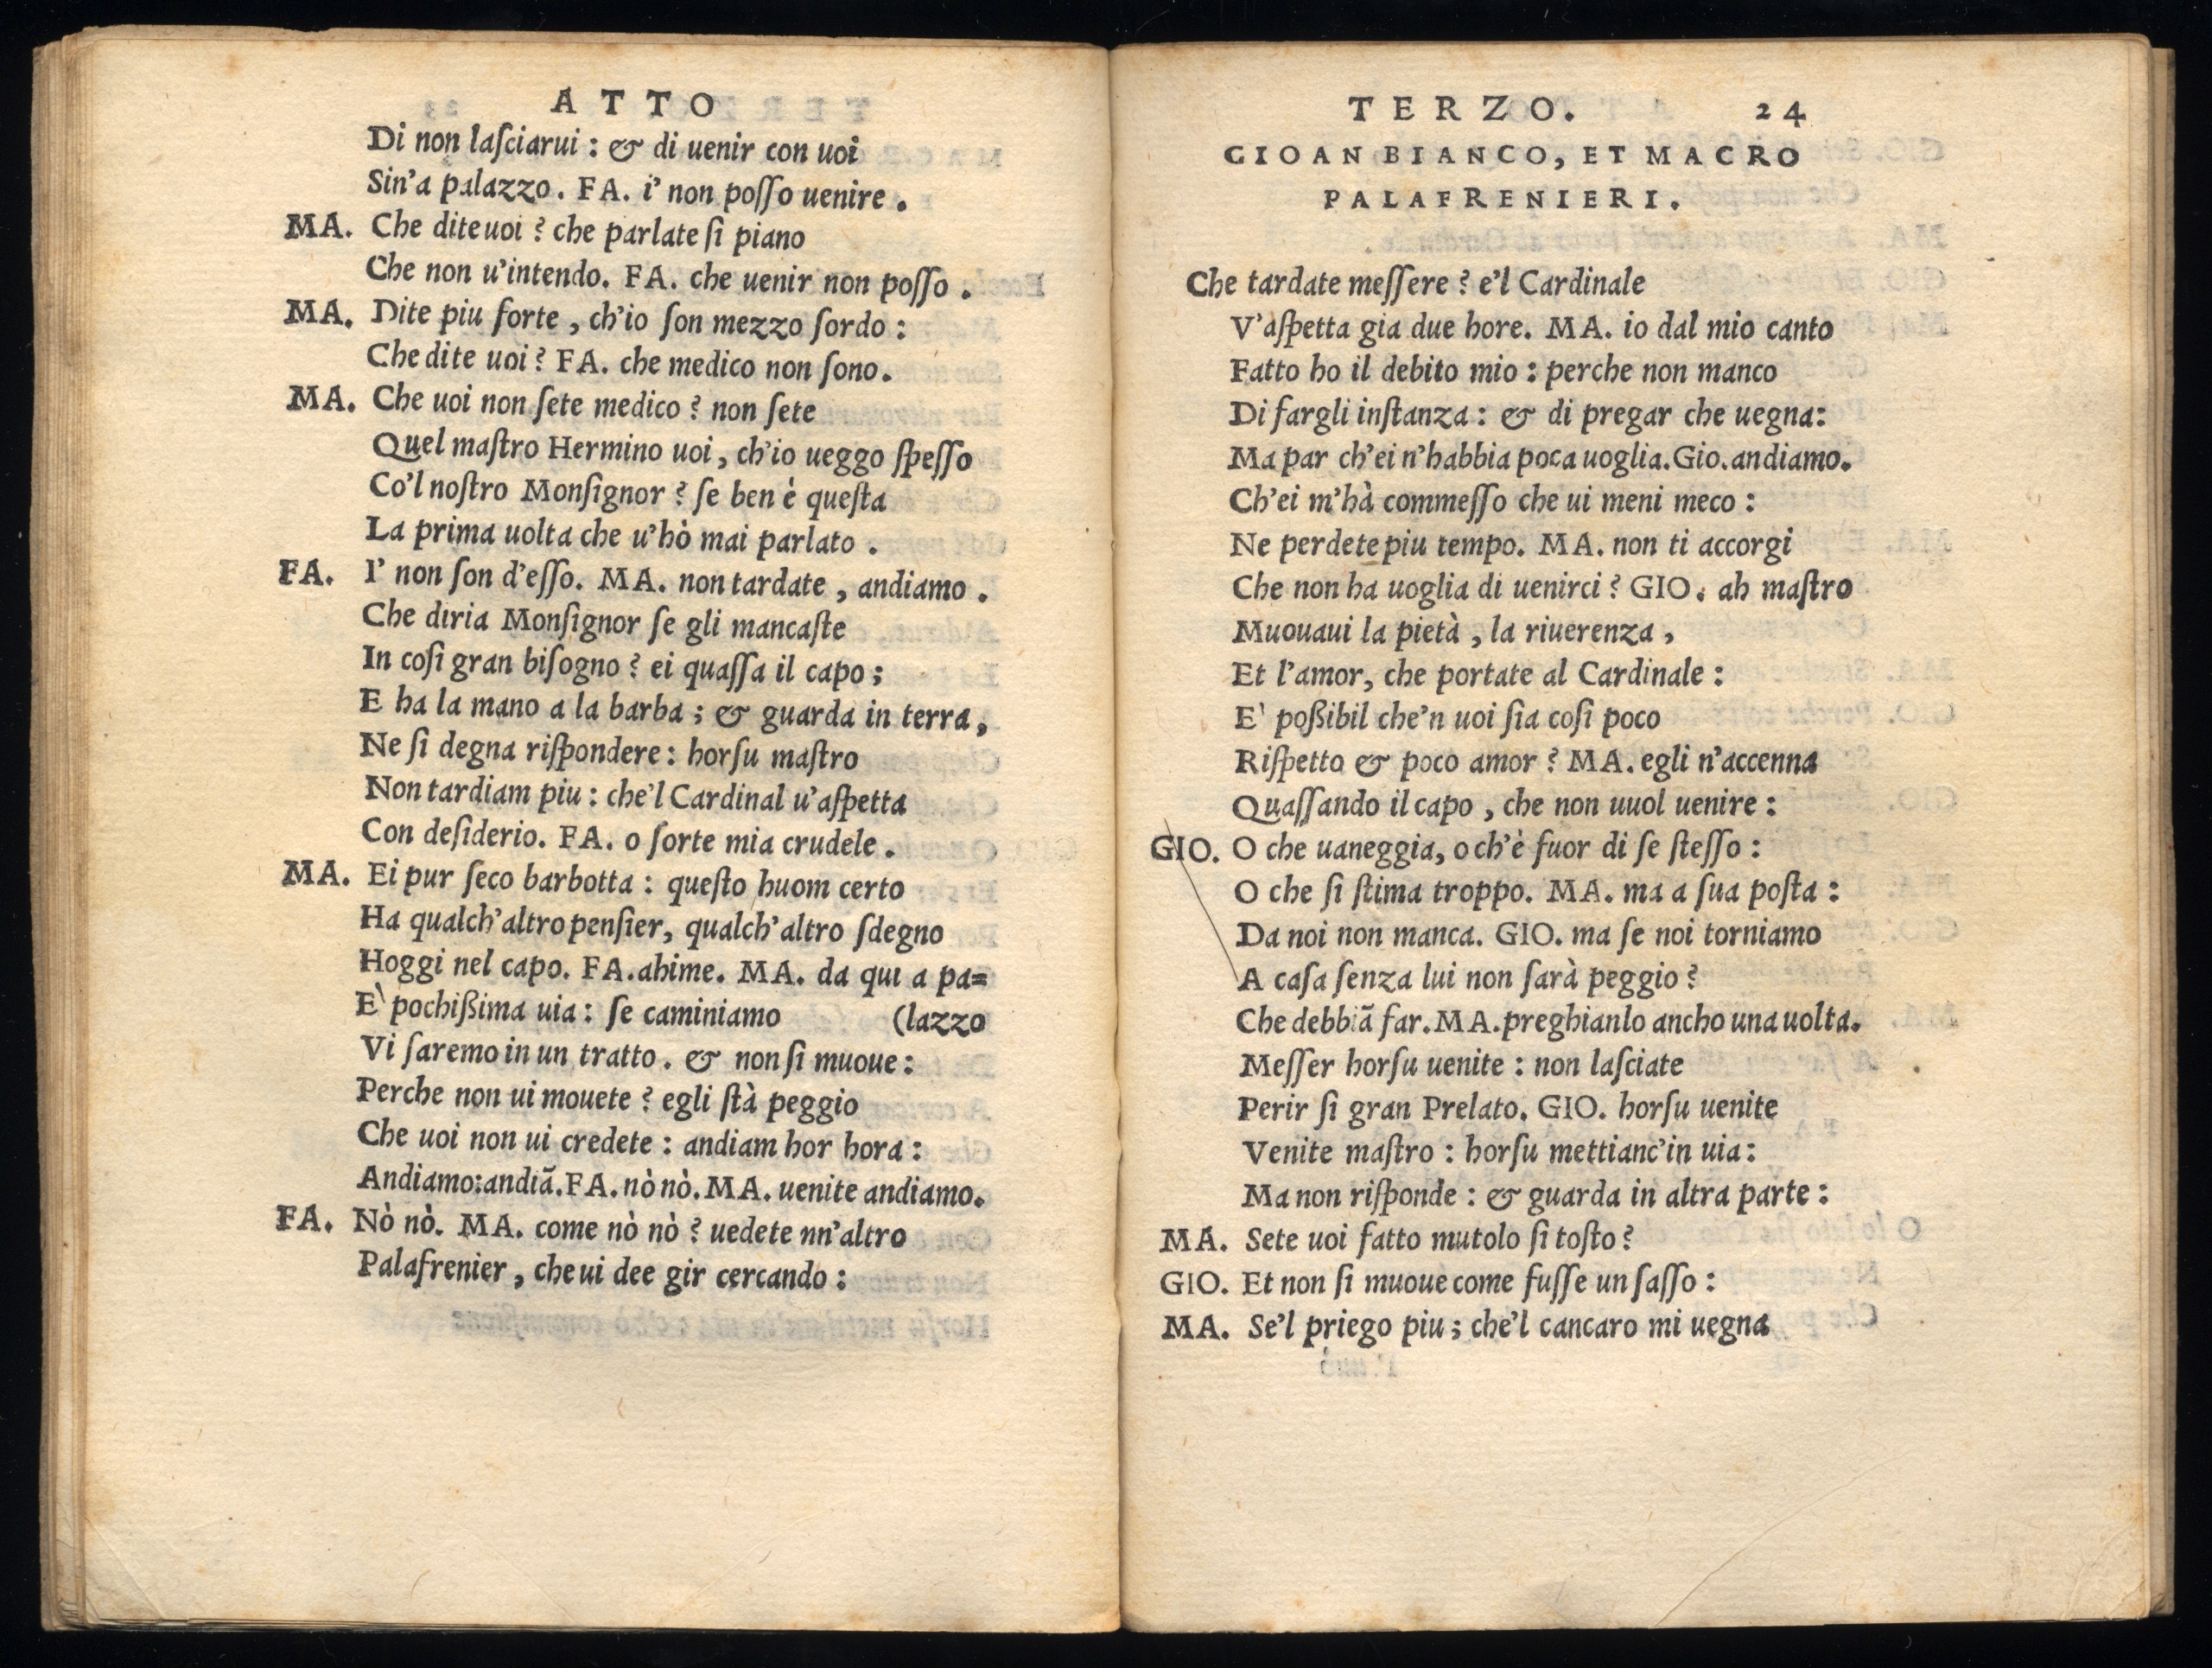 ATTO
Di non laſciarui : & di uenir con uoi
Sin'a palazzo. FA. i' non poſſo uenire.
MA. Che dite uoi ? che parlate ſi piano
Che non u'intendo. FA. che uenir non poſſo.
MA. Dite piu forte, ch'io ſon mezzo ſordo :
Che dite uoi ? FA. che medico non ſono.
MA. Che uoi non ſete medico ? non ſete
Quel maſtro Hermino uoi, ch'io ueggo ſpeſſo
Co'l noſtro Monſignor ? ſe ben è queſta
La prima uolta che u'hò mai parlato.
FA. I' non ſon d'eſſo. MA. non tardate, andiamo.
Che diria Monſignor ſe gli mancaſte
In coſi gran biſogno ? ei quaſſa il capo ;
E ha la mano a la barba ; & guarda in terra,
Ne ſi degna riſpondere : horſu maſtro
Non tardiam piu : che'l Cardinal u'aſpetta
Con deſiderio. FA. o ſorte mia crudele.
MA. Ei pur ſeco barbotta : queſto huom certo
Ha qualch'altro penſier, qualch'altro ſdegno
Hoggi nel capo. FA. ahime. MA. da qui a pa=
E' pochißima uia : ſe caminiamo (lazzo
Vi ſaremo in un tratto. & non ſi muoue :
Perche non ui mouete ? egli ſtà peggio
Che uoi non ui credete : andiam hor hora :
Andiamo : andiã. FA. nò nò. MA. uenite andiamo.
FA. Nò nò. MA. come nò nò ? uedete nn'altro
Palafrenier, che ui dee gir cercando :
TERZO. 24
GIOAN BIANCO, ET MACRO
PALAFRENIERI.
Che tardate meſſere ? e'l Cardinale
V'aſpetta gia due hore. MA. io dal mio canto
Fatto ho il debito mio : perche non manco
Di fargli inſtanza : & di pregar che uegna :
Ma par ch'ei n'habbia poca uoglia. Gio. andiamo.
Ch'ei m'hà commeſſo che ui meni meco :
Ne perdete piu tempo. MA. non ti accorgi
Che non ha uoglia di uenirci ? GIO. ah maſtro
Muouaui la pietà, la riuerenza,
Et l'amor, che portate al Cardinale :
E' poßibil che'n uoi ſia coſi poco
Riſpetto & poco amor ? MA. egli n'accenna
Quaſſando il capo, che non uuol uenire :
GIO. O che uaneggia, o ch'è fuor di ſe ſteſſo :
O che ſi ſtima troppo. MA. ma a ſua poſta :
Da noi non manca. GIO. ma ſe noi torniamo
A caſa ſenza lui non ſarà peggio ?
Che debbiã far. MA. preghianlo ancho una uolta.
Meſſer horſu uenite : non laſciate
Perir ſi gran Prelato. GIO. horſu uenite
Venite maſtro : horſu mettianc'in uia :
Ma non riſponde : & guarda in altra parte :
MA. Sete uoi fatto mutolo ſi toſto ?
GIO. Et non ſi muoue come fuſſe un ſaſſo :
MA. Se'l priego piu ; che'l cancaro mi uegna